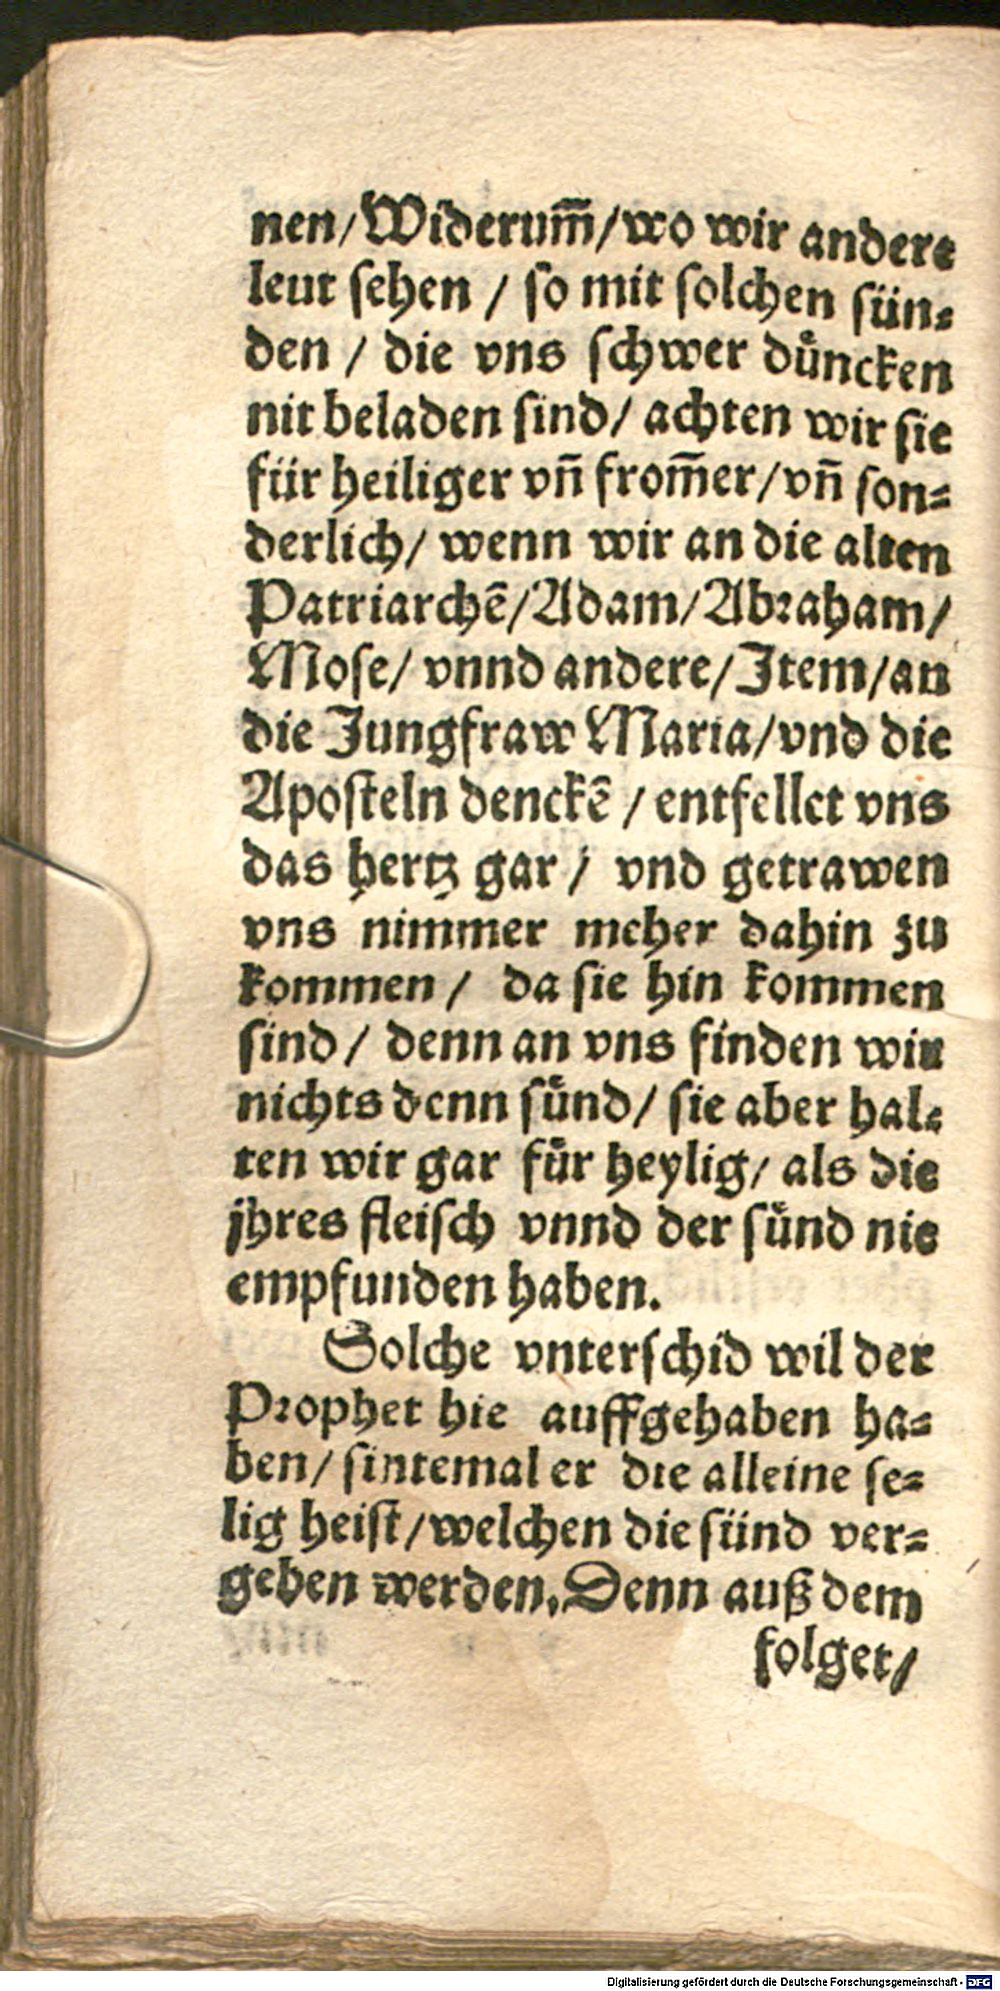 nen/Widerum̄/wo wir andere
leut sehen / so mit solchen sün⸗
den / die vns schwer duͤncken
nit beladen sind/ achten wir sie
für heiliger vn̄ from̄er/vn̄ son⸗
derlich/ wenn wir an die alten
Patriarchē/Adam/Abraham/
Mose/ vnnd andere/Item/an
die Jungfraw Maria/vnd die
Aposteln denckē / entfellet vns
das hertz gar / vnd getrawen
vns nimmer meher dahin zu
kommen / da sie hin kommen
sind/ denn an vns finden wir
nichts denn suͤnd/ sie aber hal⸗
ten wir gar fuͤr heylig/ als die
jhres fleisch vnnd der suͤnd nie
empfunden haben.
Solche vnterschid wil der
Prophet hie auffgehaben ha⸗
ben/ sintemal er die alleine se⸗
lig heist/welchen die sünd ver⸗
geben werden. Denn auß dem
folget/
Digitalisierung gefördert durch die Deutsche Forschungsgemeinschaft - DFG